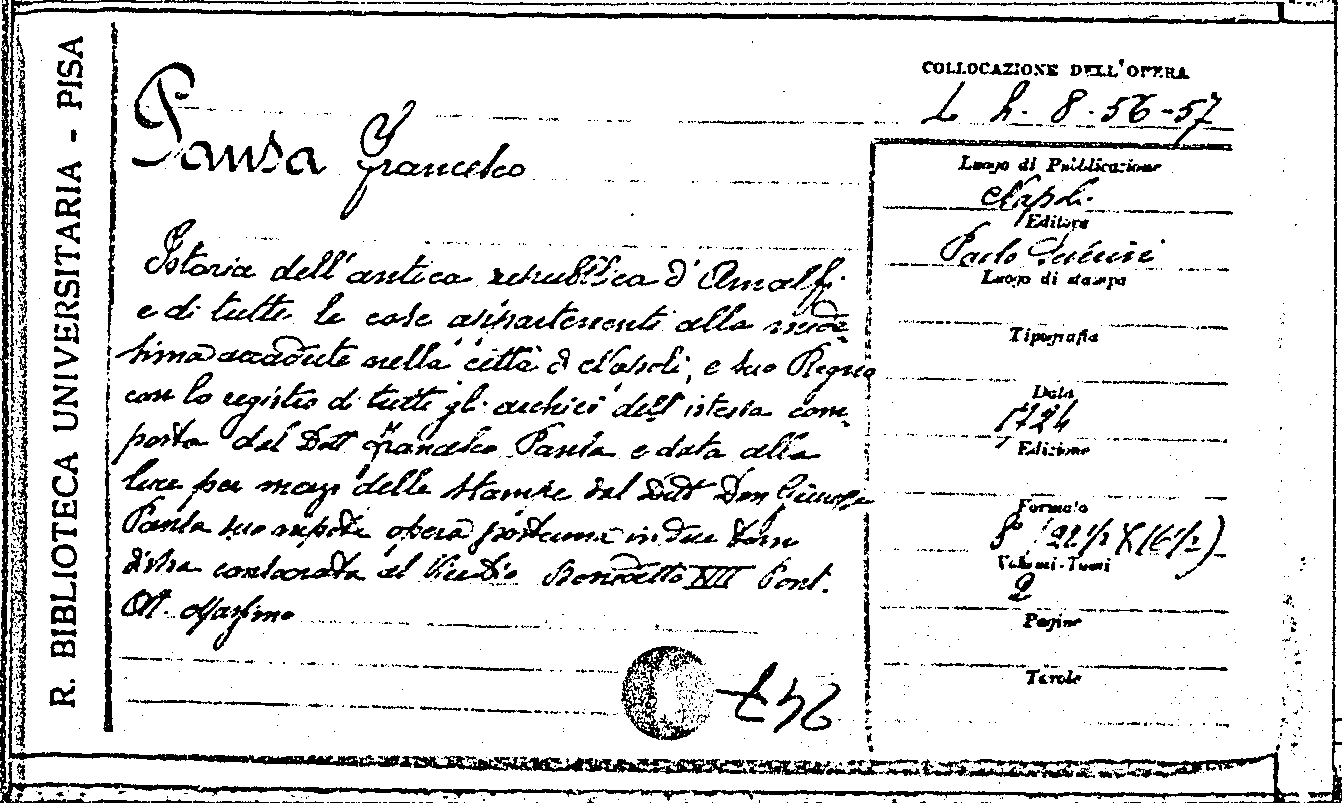 R. BIBLIOTECA UNIVERSITARIA - PISA
COLLOCAZIONE DELL'OPERA
L h. 8. 56-57
Pansa Francesco
Luogo di Pubblicazione
Napoli
Editore
Paolo
Luogo di stampa
Tipografia
Data
1724
Edizione
Formato
8° (22 1/2 X 16 1/2)
Volumi-Tomi
2
Pagine
Tavole
Istoria dell'antica repubblica d'Amalfi
e di tutte le cose appartenenti alla mede
sima accadute nella città di Napoli, e suo Regno
con lo registro di tutti gli archivi dell'istessa com
posta dal Dott Francesco Pansa e data alla
luce per mezo delle stampe dal Dott Don Giuseppe
Pansa suo nipote opera postuma in due tomi
distra consacrata al Benedetto XIII Pont.
Ott. Massimo